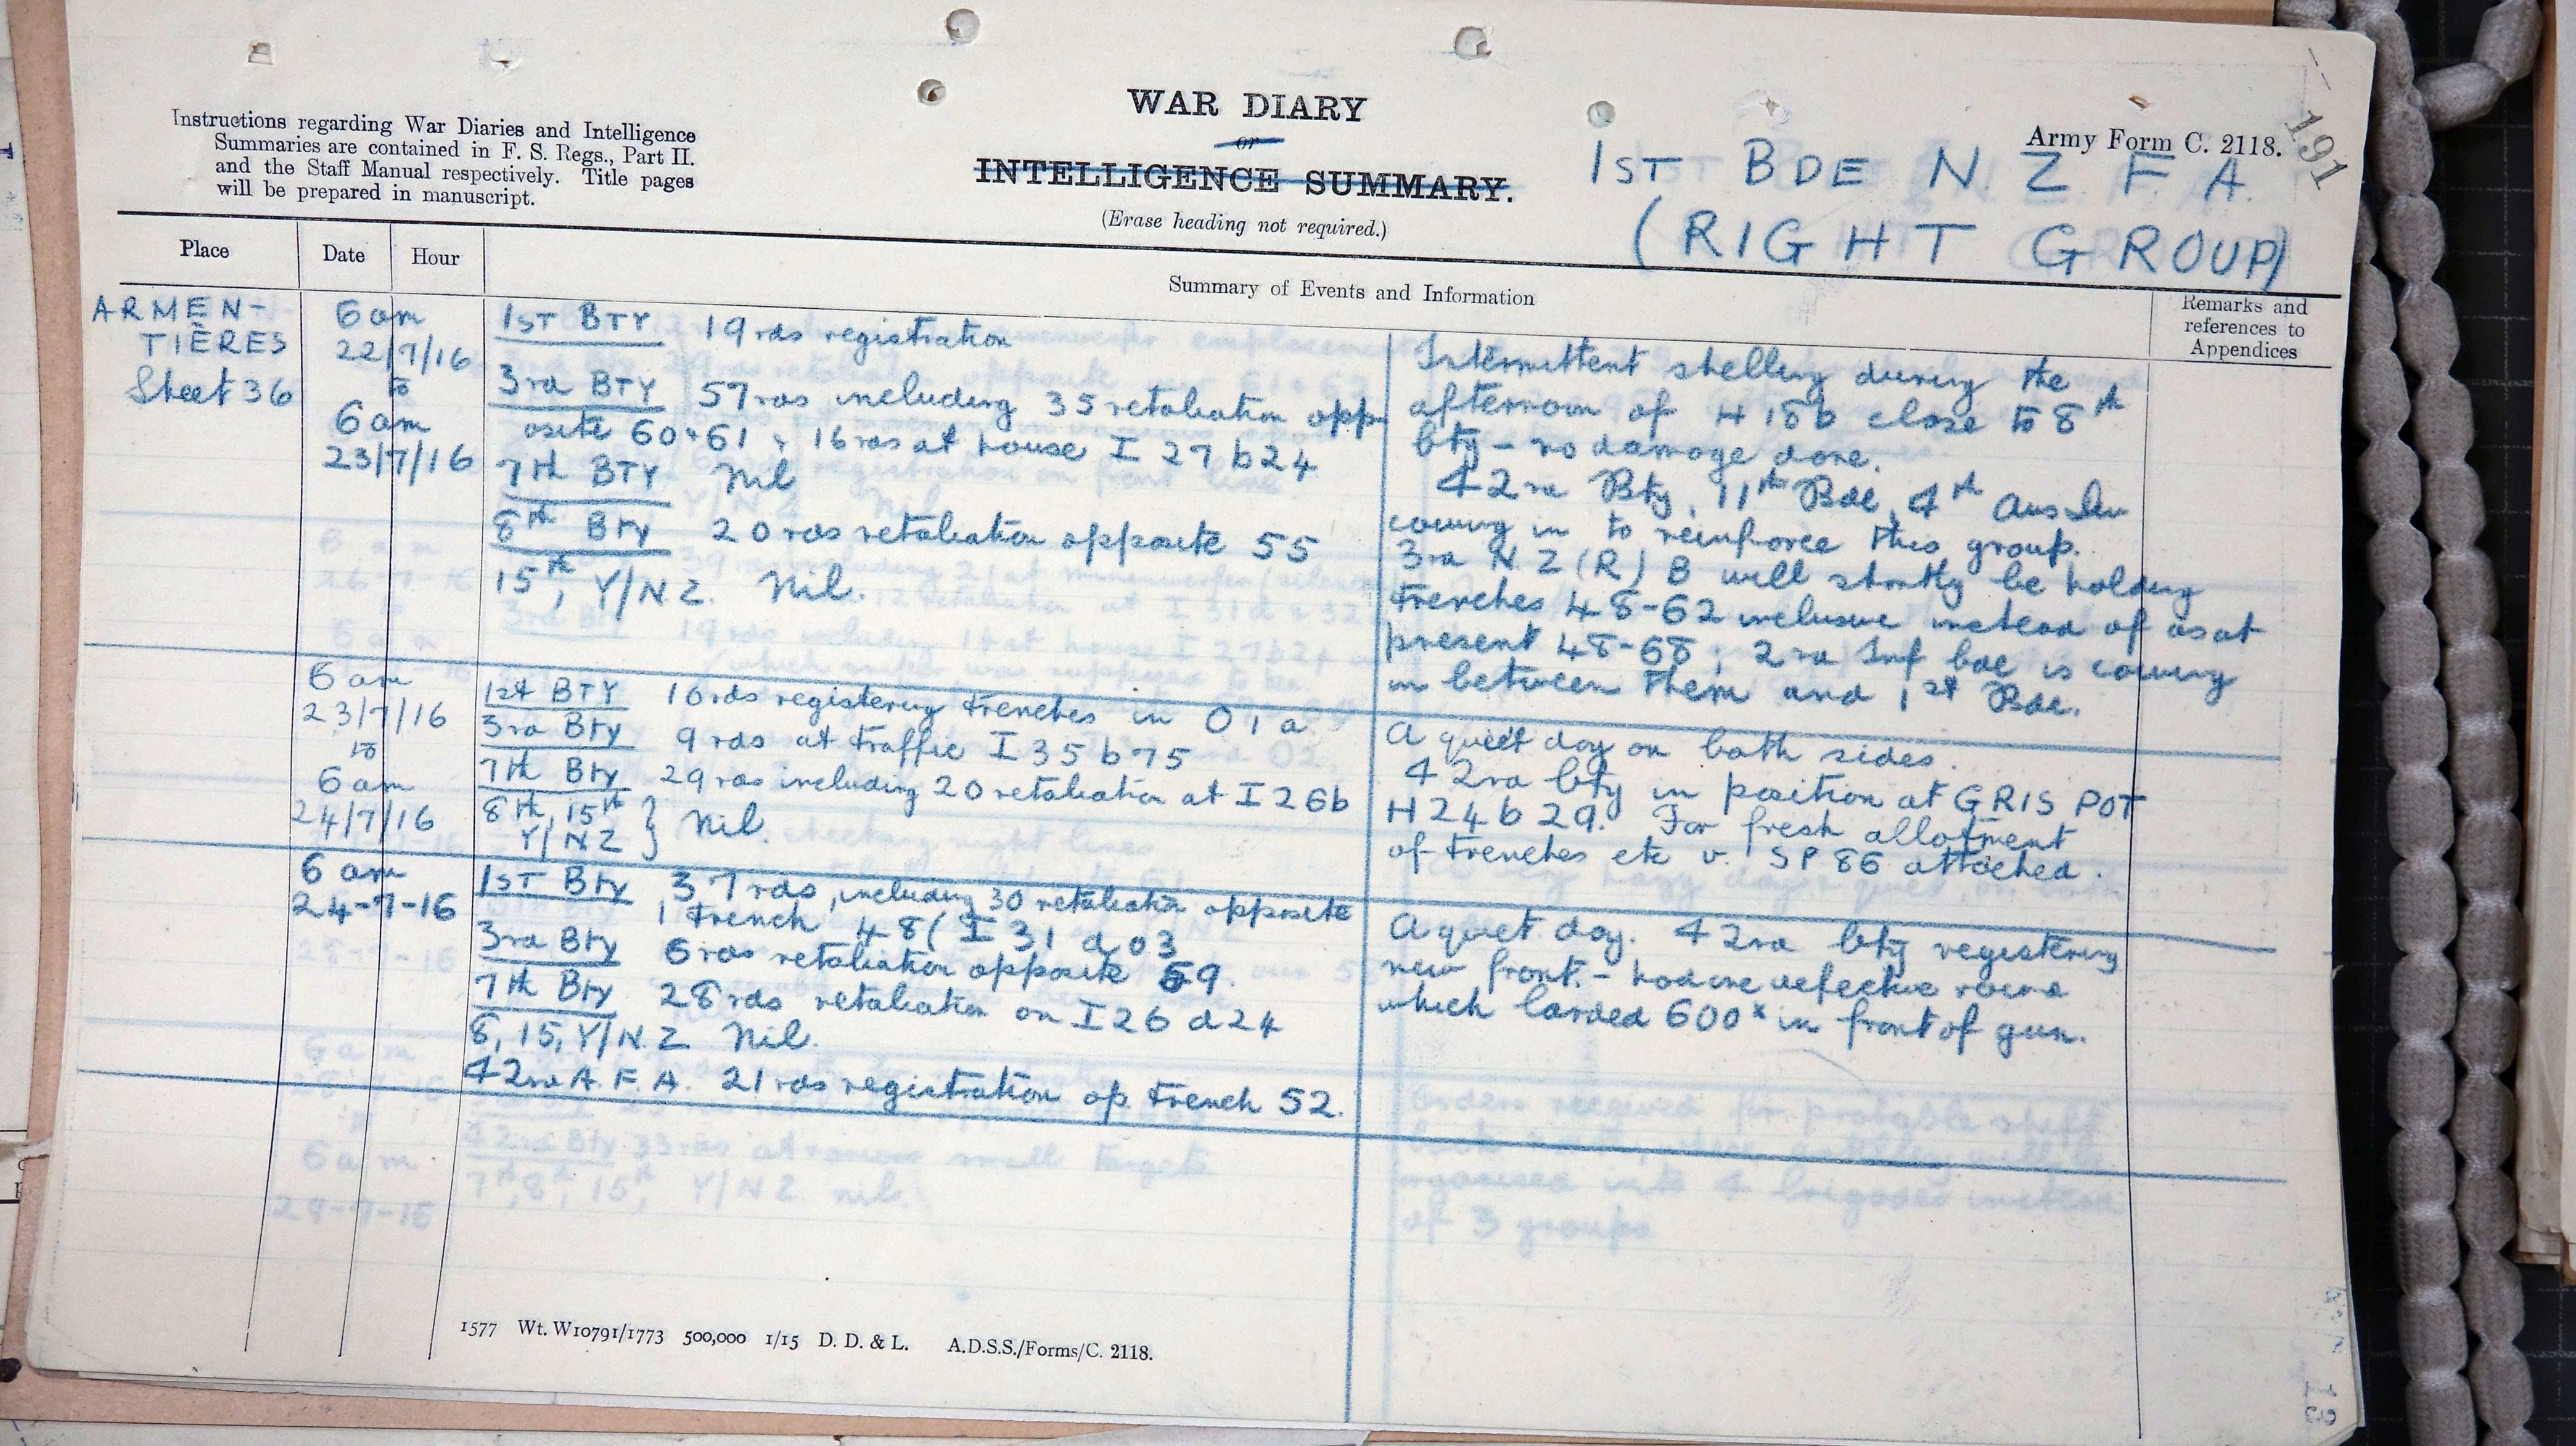 Instructions regarding War Diaries and Intelligence
Summaries are contained in F. S. Regs., Part II.
and the Staff Manual respectively. Title pages
will be prepared in manuscript.
WAR DIARY
or
INTELLIGENCE SUMMARY.
(Erase heading not required.)
Army Form C. 2118.
191
1ST BDE N. Z. F. A.
(RIGHT GROUP)
Place
Date
Hour
Summary of Events and Information
Remarks and
references to
Appendices
ARMEN-
TIÈRES
Sheet 36
6 am
22/7/16
to
6 am
23/7/16
1ST BTY 19 rds registration
3rd BTY 57 rds including 35 retaliation opp
osite 60 & 61 & 16 rds at house I 27 b 24
7th BTY Nil
8th Bty 20 rds retaliation opposite 55
15th, Y/N Z. Nil.
Intermittent shelling during the
afternoon of H 18 b close to 8th
bty - no damage done.
42nd Bty, 11th Bde, 4th Aus Div
coming in to reinforce this group.
3rd N. Z (R) B will shortly be holding
trenches 48-62 inclusive instead of as at
present 48-68; 2nd Inf bde is coming
in between them and 1st Bde.
6 am
23/7/16
to
6 am
24/7/16
1st BTY 10 rds registering trenches in O 1 a
3rd Bty 9 rds at traffic I 35 b 75
7th Bty 29 rds including 20 retaliation at I 26 b
8th, 15th } Nil.
Y/N Z
A quiet day on both sides.
42nd bty in position at GRIS POT
H 24 b 29. For fresh allotment
of trenches etc v. SP 86 attached.
6 am
24-7-16
1ST Bty 37 rds, including 30 retaliation opposite
trench 48 (I 31 d 03
3rd Bty 6 rds retaliation opposite 59.
7th Bty 28 rds retaliation on I 26 d 24
8, 15, Y/N. Z Nil.
42nd A. F. A. 21 rds registration op. trench 52.
A quiet day. 42nd bty registering
new front. - had one defective round
which landed 600x in front of gun.
1577 Wt. W10791/1773 500,000 1/15 D. D. & L. A.D.S.S./Forms/C. 2118.